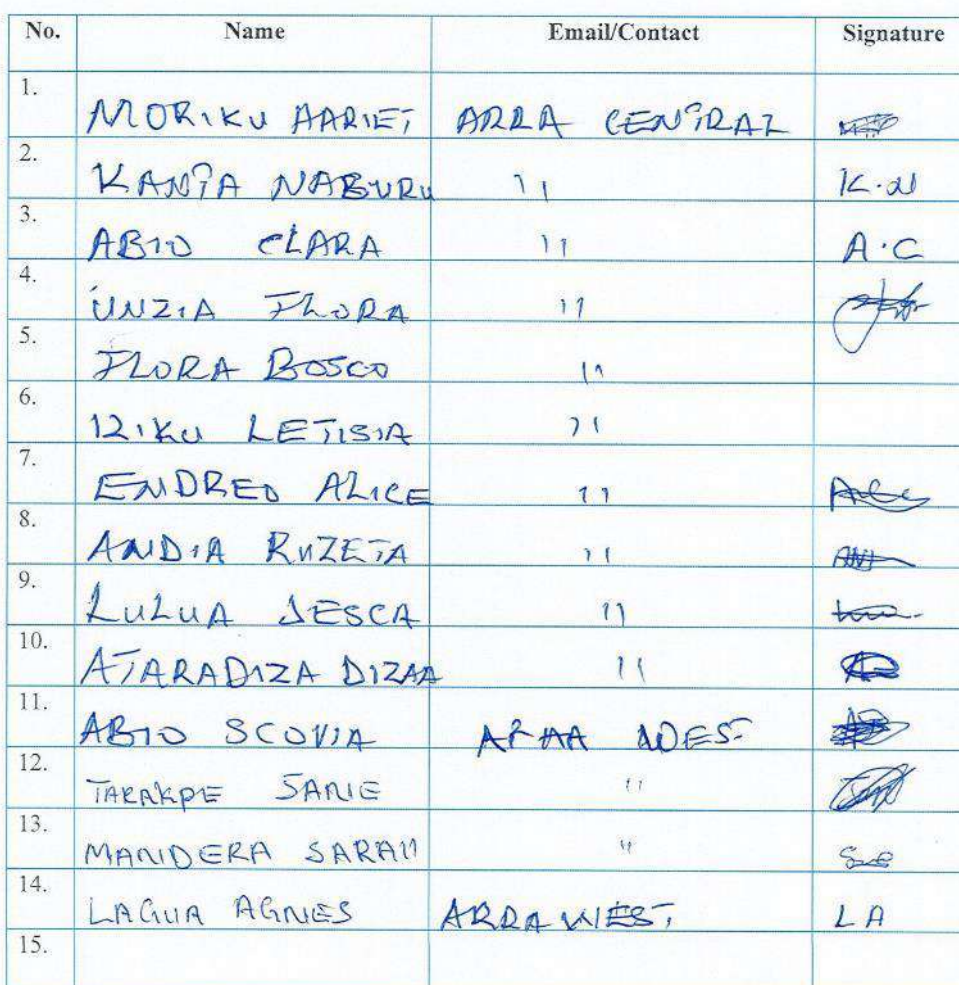 No. Name Email/Contact Signature
1. MORIKU AARIET ARRA CENTRAL
2. KANTA NABURU 11 K.N
3. ABIO CLARA 11 A.C
4. UNZIA FLORA 11
5. FLORA BOSCO 11
6. IZIKU LETISIA 11
7. ENDREO ALICE 11
8. ANDIA RUZETA 11
9. LULUA JESCA 11
10. ATARADIZA DIZAA 11
11. ABIO SCOVIA WEST
12. JANIE "
13. MANDERA SARAH "
14. LAGUA AGNES ARRA WEST LA
15.